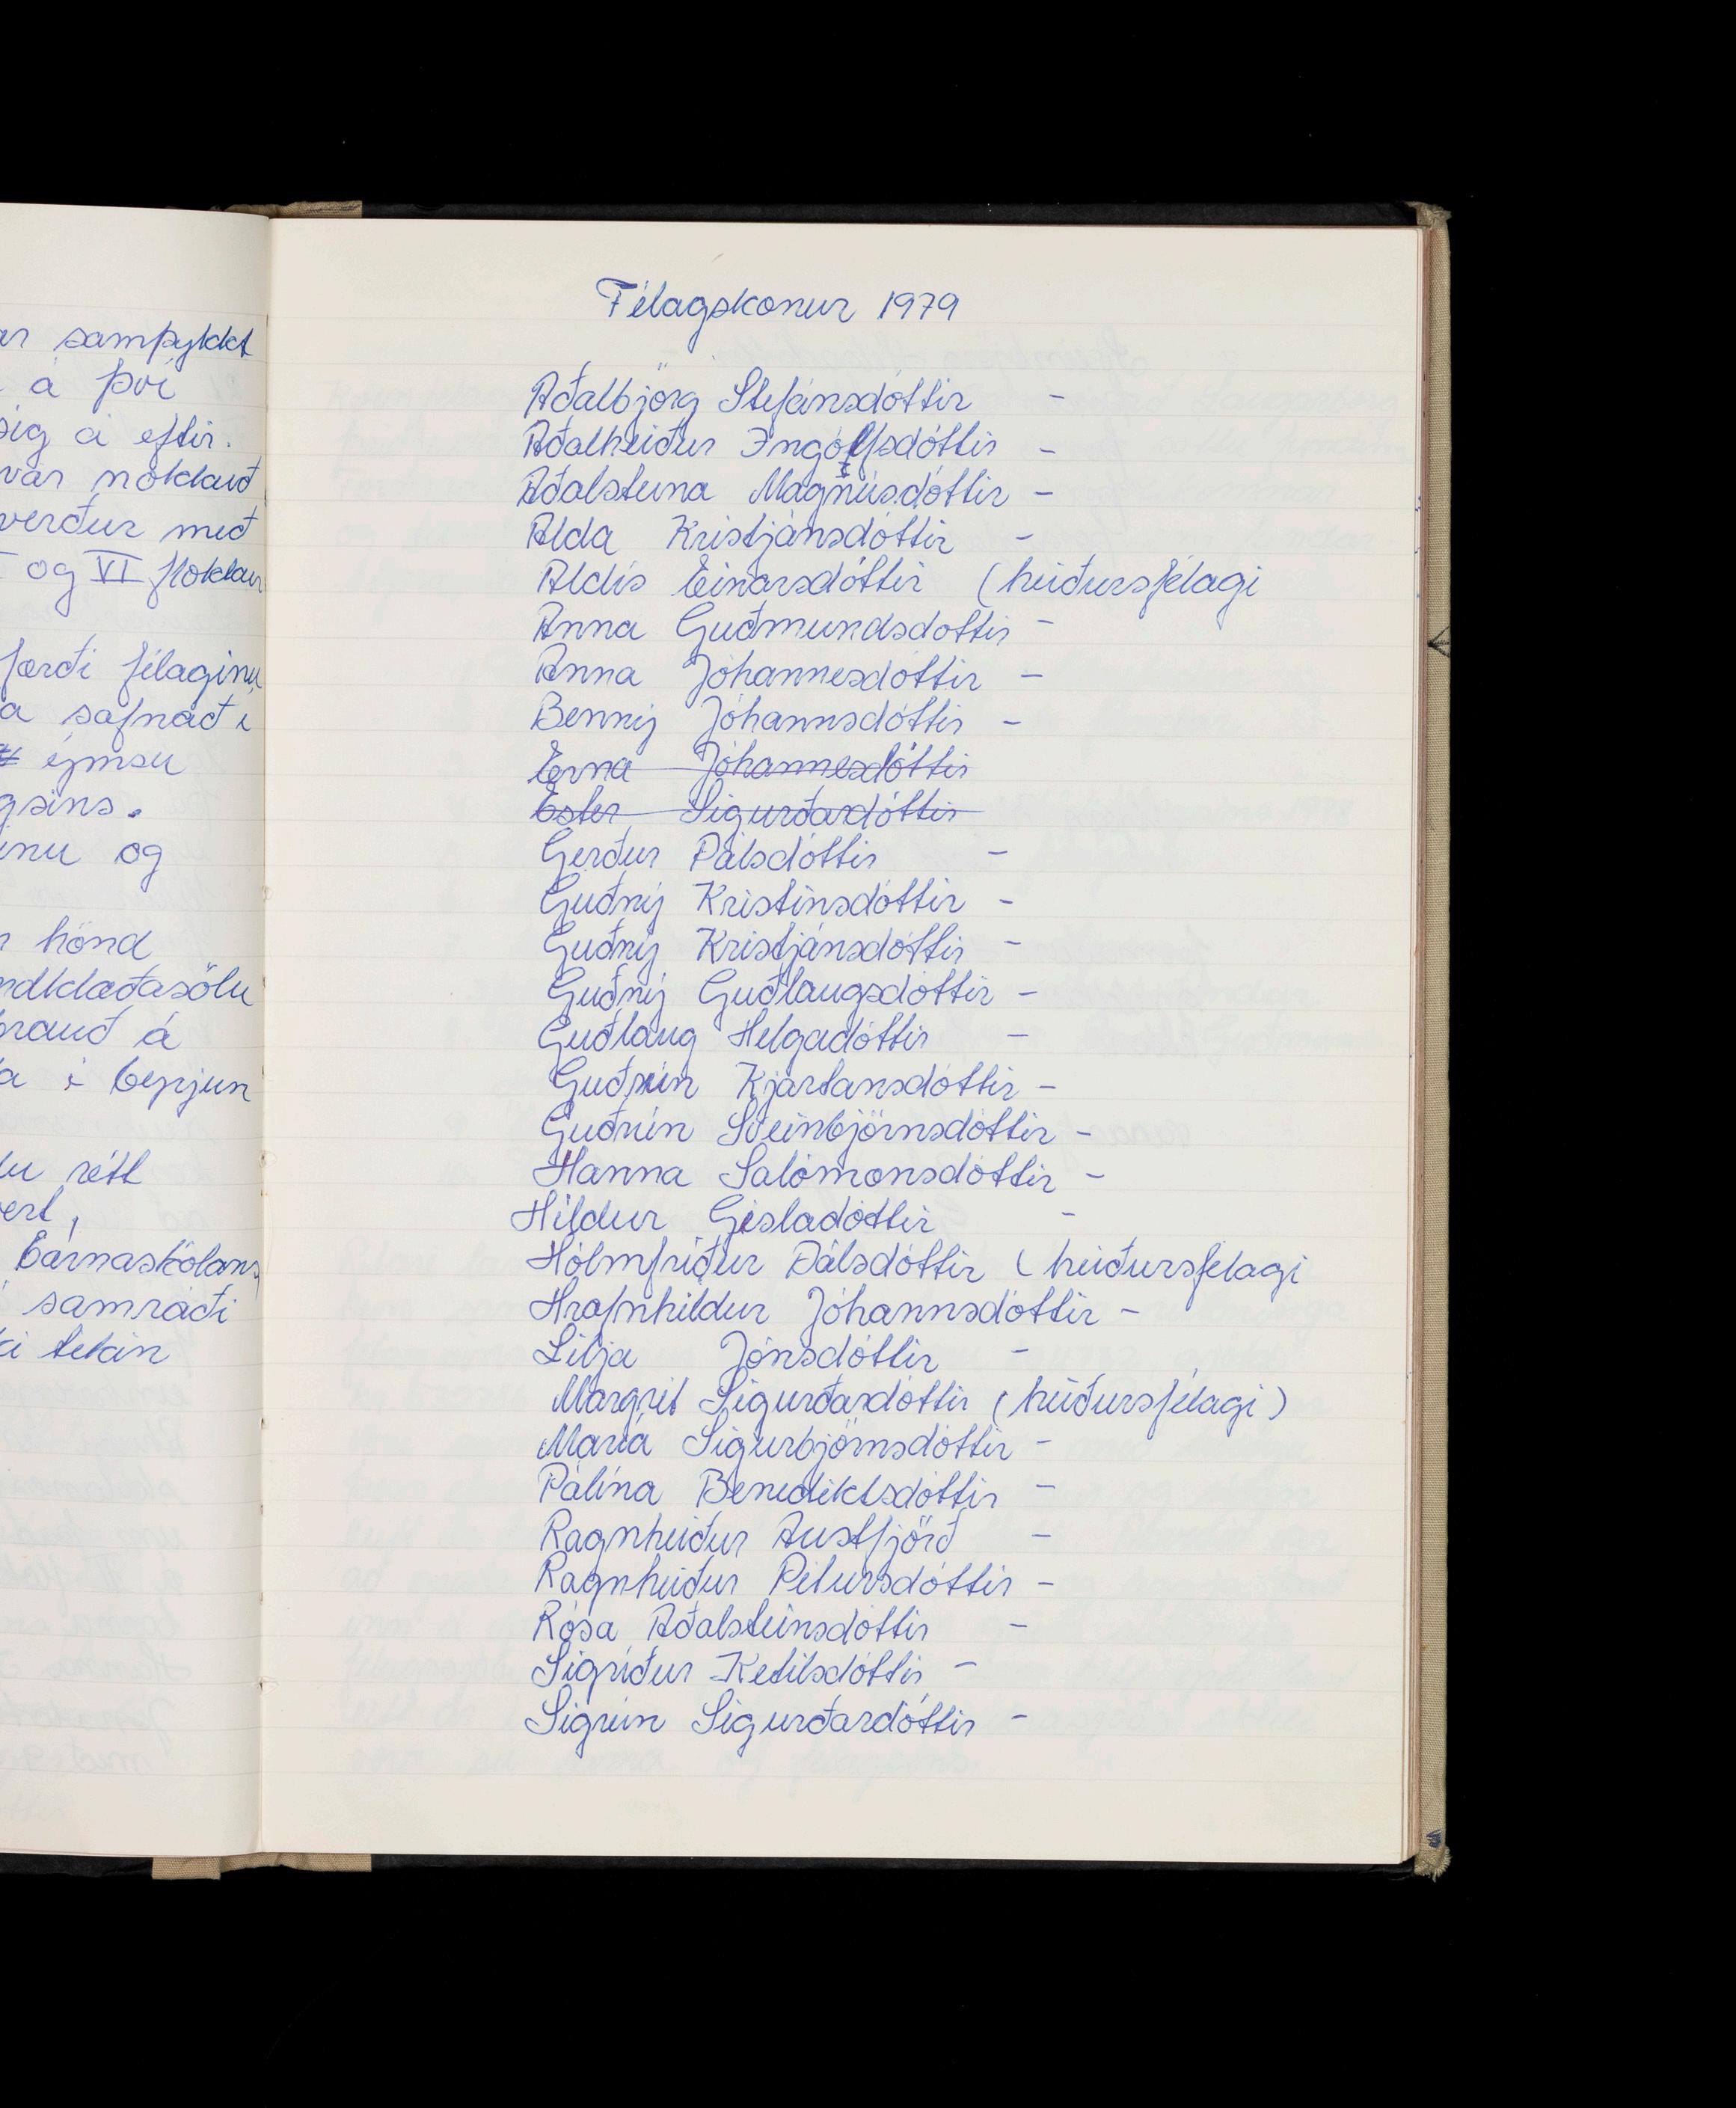 ar samþykkt
á því
sig á eftir.
var nokkuð
verður með
og VI flokkur
færði félaginu
a safnað í
ýmsu
gsins.
inu og
hönd
ndklæðasölu
brauð á
a í byrjun
lu rétt
vert,
Barnaskólans
samráði
ki tekin
Félagskonur 1979
Aðalbjörg Stefánsdóttir -
Aðalheiður Ingólfsdóttir -
Aðalsteina Magnúsdóttir -
Alda Kristjánsdóttir -
Aldís Einarsdóttir (heiðursfélagi
Anna Guðmundsdóttir -
Anna Jóhannesdóttir -
Benný Jóhannsdóttir -
Erna Jóhannesdóttir
Ester Sigurðardóttir
Gerður Pálsdóttir -
Guðný Kristinsdóttir -
Guðný Kristjánsdóttir -
Guðný Guðlaugsdóttir -
Guðlaug Helgadóttir -
Guðrún Kjartansdóttir -
Guðrún Sveinbjörnsdóttir -
Hanna Salómonsdóttir -
Hildur Gísladóttir -
Hólmfríður Pálsdóttir (heiðursfélagi
Hrafnhildur Jóhannsdóttir -
Lilja Jónsdóttir -
Margrét Sigurðardóttir (heiðursfélagi)
María Sigurbjörnsdóttir -
Pálína Benediktsdóttir -
Ragnheiður Austfjörð -
Ragnheiður Pétursdóttir -
Rósa Aðalsteinsdóttir -
Sigríður Ketilsdóttir -
Sigrún Sigurðardóttir -